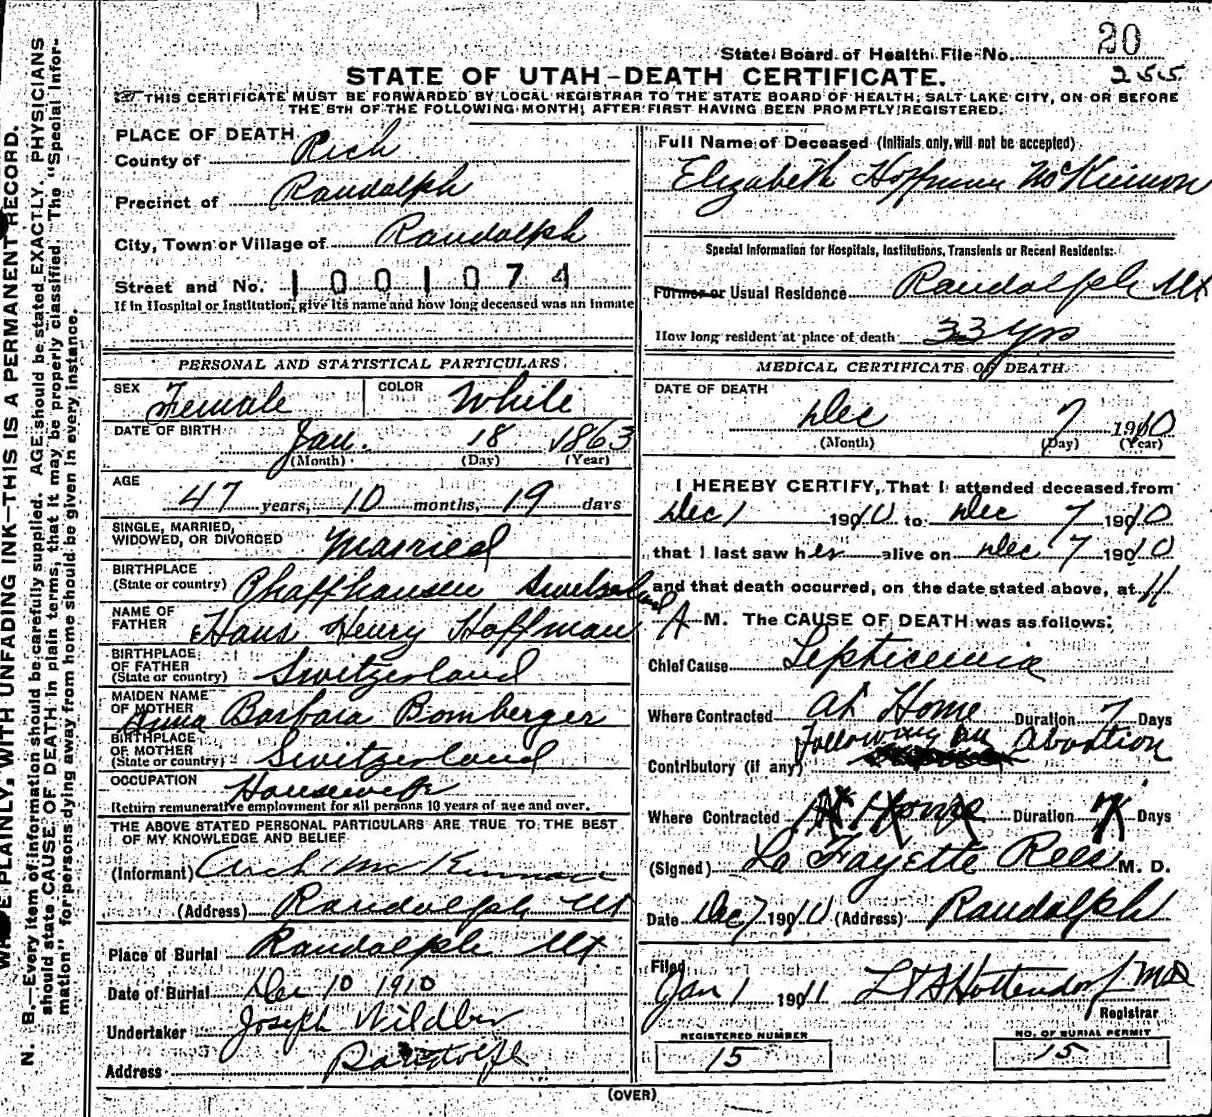 20
State Board of Health File No.
255
STATE OF UTAH—DEATH CERTIFICATE.
THIS CERTIFICATE MUST BE FORWARDED BY LOCAL REGISTRAR TO THE STATE BOARD OF HEALTH, SALT LAKE CITY, ON OR BEFORE
THE 5TH OF THE FOLLOWING MONTH, AFTER FIRST HAVING BEEN PROMPTLY REGISTERED.
PLACE OF DEATH
County of Rich
Precinct of Randolph
City, Town or Village of Randolph
Street and No. 1001074
If in Hospital or Institution, give its name and how long deceased was an inmate
PERSONAL AND STATISTICAL PARTICULARS
SEX Female COLOR White
DATE OF BIRTH Jan. 18 1863
(Month) (Day) (Year)
AGE
47 years, 10 months, 19 days
SINGLE, MARRIED,
WIDOWED, OR DIVORCED Married
BIRTHPLACE
(State or country) Phaffhausen Switzerland
NAME OF
FATHER Hans Henry Hoffman
BIRTHPLACE
OF FATHER
(State or country) Switzerland
MAIDEN NAME
OF MOTHER Anna Barbara Bomberger
BIRTHPLACE
OF MOTHER
(State or country) Switzerland
OCCUPATION Housewife
Return remunerative employment for all persons 10 years of age and over.
THE ABOVE STATED PERSONAL PARTICULARS ARE TRUE TO THE BEST
OF MY KNOWLEDGE AND BELIEF
(Informant) Arch McKinnon
(Address) Randolph Ut
Place of Burial Randolph Ut
Date of Burial Dec 10 1910
Undertaker Joseph
Address Randolph
Full Name of Deceased (Initials only, will not be accepted)
Elizabeth Hoffman McKinnon
Special Information for Hospitals, Institutions, Transients or Recent Residents:
Former or Usual Residence Randolph Ut
How long resident at place of death 33 yrs
MEDICAL CERTIFICATE OF DEATH
DATE OF DEATH
Dec 7 1910
(Month) (Day) (Year)
I HEREBY CERTIFY, That I attended deceased from
Dec 1 1910 to Dec 7 1910
that I last saw her alive on Dec 7 1910
and that death occurred, on the date stated above, at 11
A M. The CAUSE OF DEATH was as follows:
Chief Cause Septicemia
Where Contracted at Home Duration 7 Days
Following an abortion
Contributory (if any)
Where Contracted At Home Duration 7 Days
(Signed) La Fayette Rees M. D.
Date Dec 7 1910 (Address) Randolph
Filed
Jan 1 1911 Hottendorf MD
Registrar
REGISTERED NUMBER
15
NO. OF BURIAL PERMIT
15
(OVER)
PLAINLY, WITH UNFADING INK—THIS IS A PERMANENT RECORD.
N. B.—Every item of information should be carefully supplied. AGE should be stated EXACTLY. PHYSICIANS
should state CAUSE OF DEATH in plain terms, that it may be properly classified. The "Special Infor-
mation" for persons dying away from home should be given in every instance.